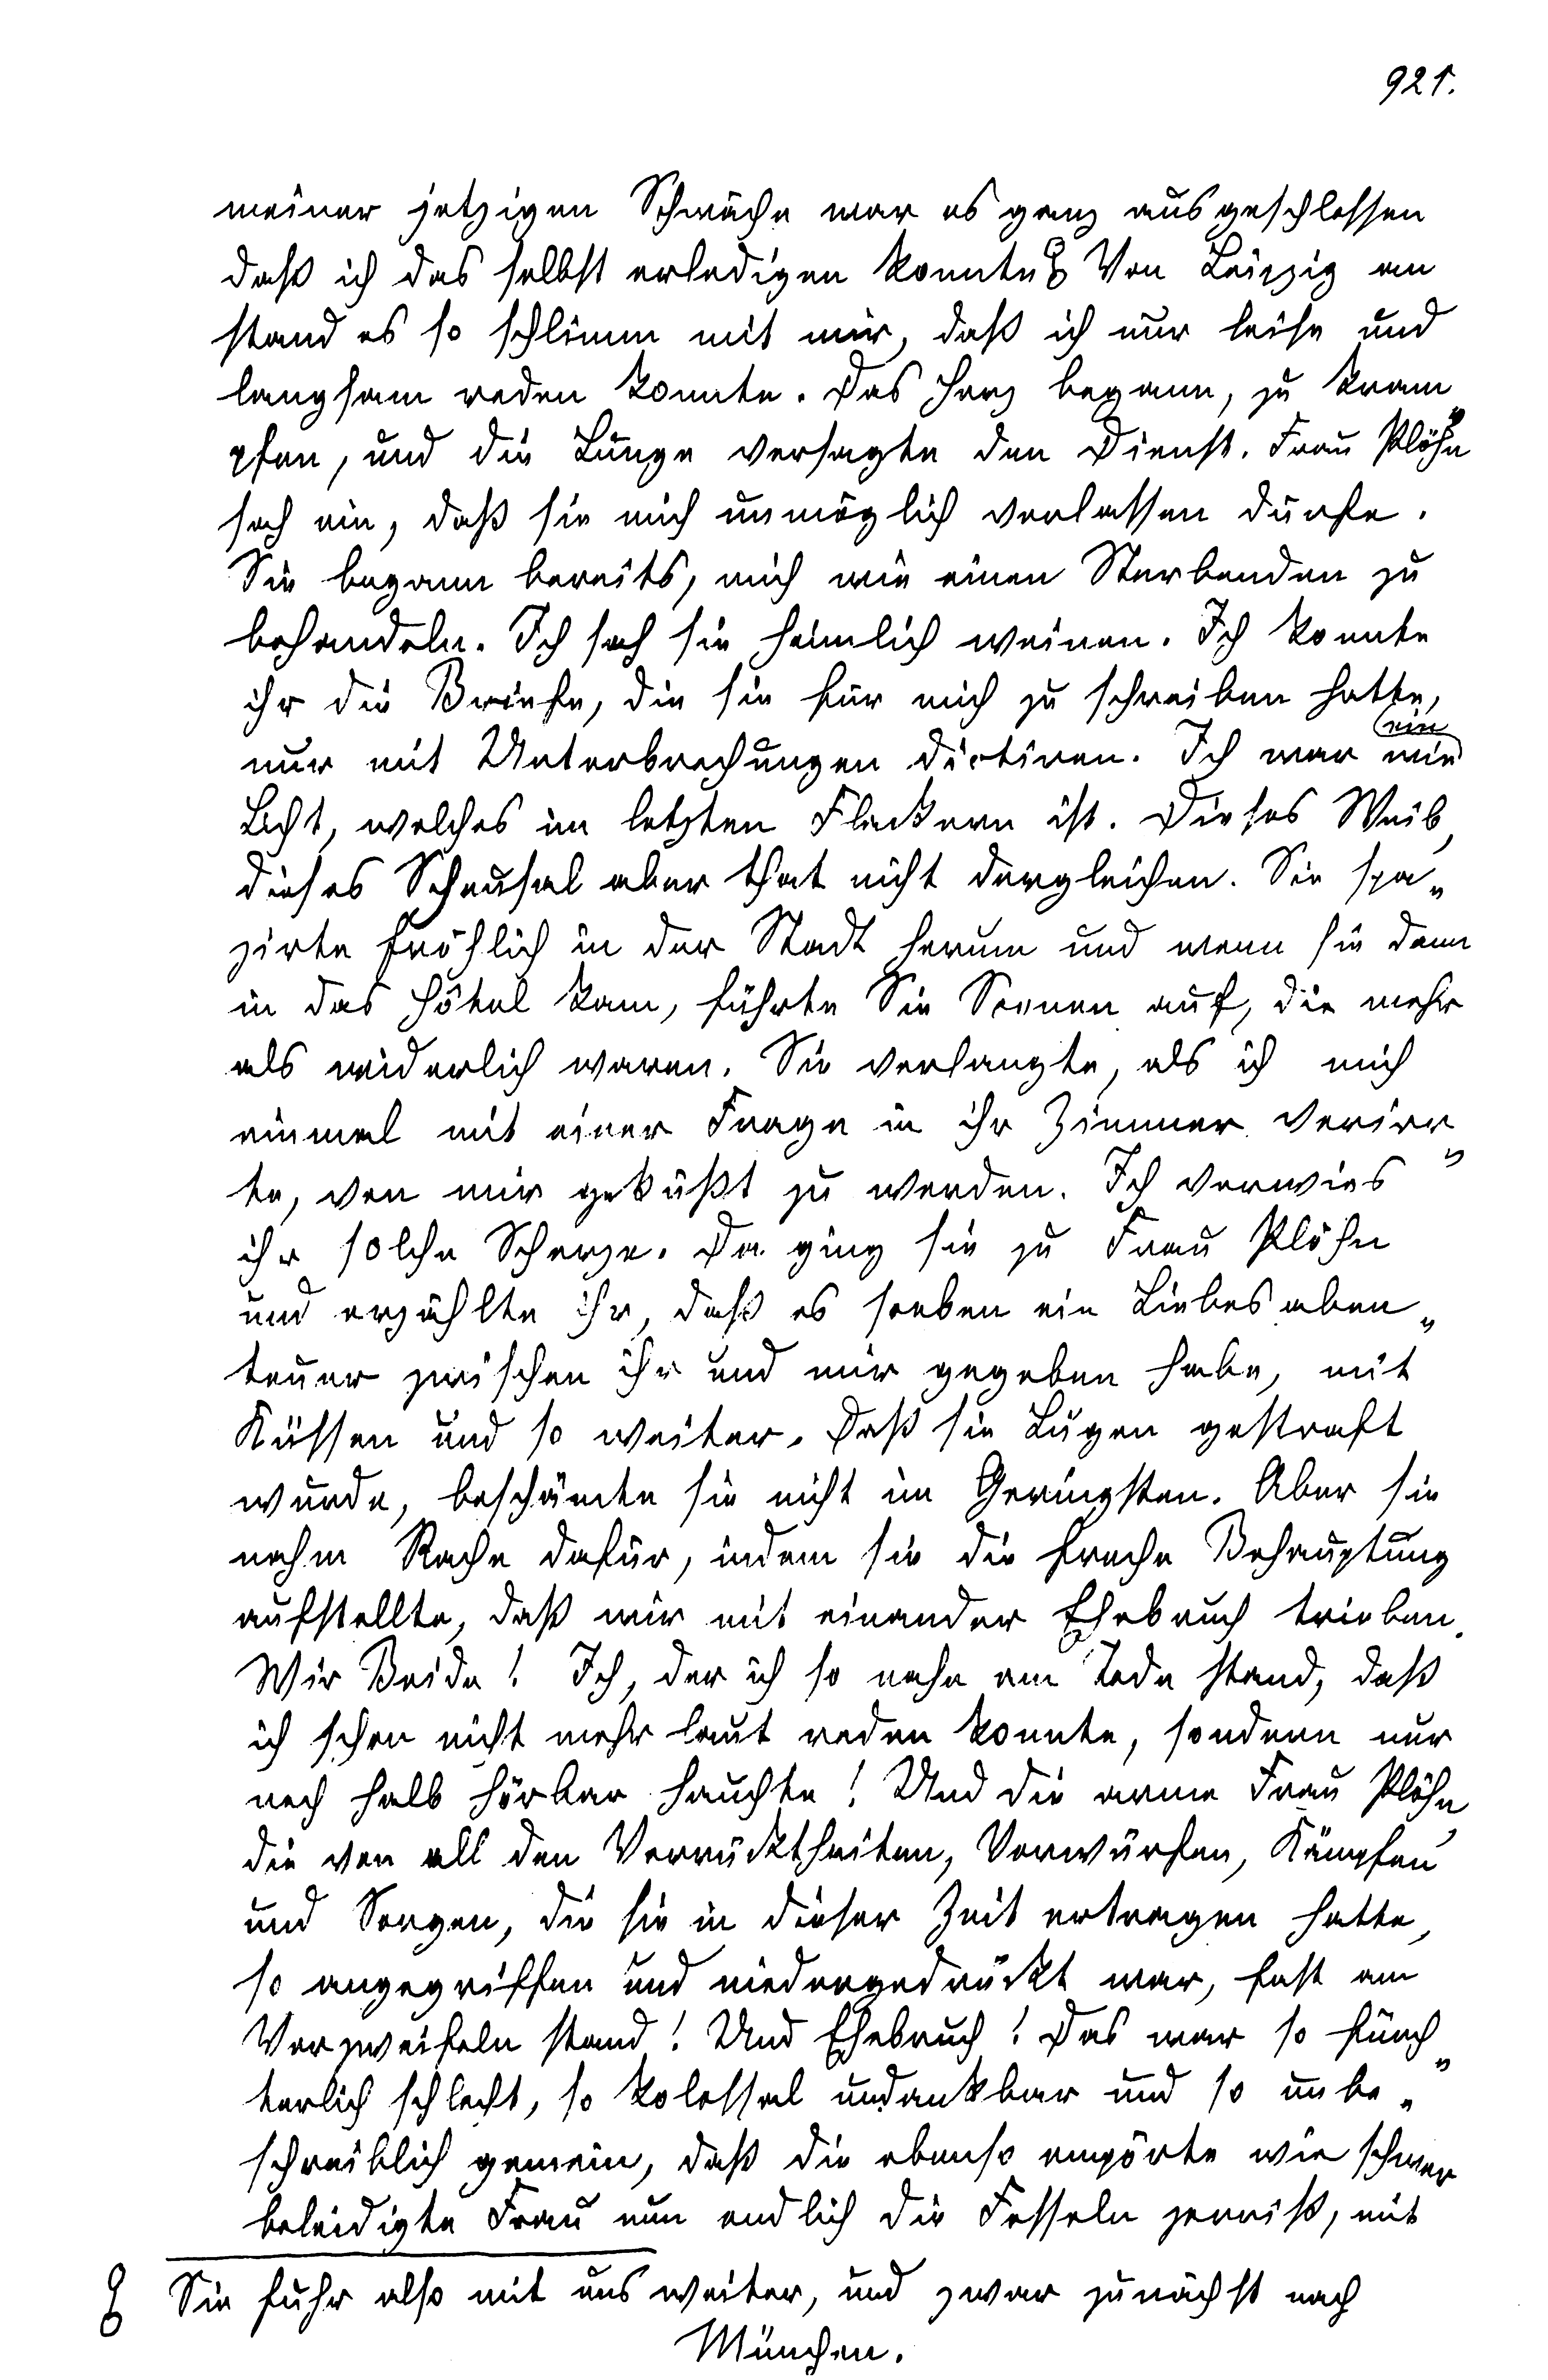 921.
meiner jetzigen Schwäche war es ganz ausgeschlossen
daß ich das selbst erledigen konnte Von Leipzig an
stand es so schlimm mit mir, daß ich nur leise und
langsam reden konnte. Das Herz begann, zu kram„
pfen, und die Lunge versagte den Dienst. Frau Plöhn
sah ein, daß sie mich unmöglich verlassen dürfe.
Sie begann bereits, mich wie einen Sterbenden zu
behandeln. Ich sah sie heimlich weinen. Ich konnte
ihr die Briefe, die sie für mich zu schreiben hatte,
nur mit Unterbrechungen dictiren. Ich war wie ein
Licht, welches im letzten Flackern ist. Dieses Weib,
dieses Scheusal aber that nicht dergleichen. Sie spa„
zirte fröhlich in der Stadt herum und wenn sie dann
in das Hôtel kam, führte Sie Scenen auf, die mehr
als widerlich waren. Sie verlangte, als ich mich
einmal mit einer Frage in ihr Zimmer verirr„
te, von mir geküßt zu werden. Ich verwies
ihr solche Scherze. Da ging sie zu Frau Plöhn
und erzählte ihr, daß es soeben ein Liebesaben„
teuer zwischen ihr und mir gegeben habe, mit
Küssen und so weiter. Daß sie Lügen gestraft
wurde, beschämte sie nicht im Geringsten. Aber sie
nahm Rache dafür, indem sie die freche Behauptung
aufstellte, daß wir mit einander Ehebruch trieben.
Wir Beide! Ich, der ich so nahe am Tode stand, daß
ich schon nicht mehr laut reden konnte, sondern nur
noch halb hörbar hauchte! Und die arme Frau Plöhn,
die von all den Verrücktheiten, Vorwürfen, Kämpfen
und Sorgen, die sie in dieser Zeit ertragen hatte,
so angegriffen und niedergedrückt war, fast am
Verzweifeln stand! Und Ehebruch! Das war so fürch„
terlich schlecht, so kolossal undankbar und so unbe„
schreiblich gemein, daß die ebenso empörte wie schwer
beleidigte Frau nun endlich die Fesseln zerriß, mit
Sie fuhr also mit uns weiter, und zwar zunächst nach
München.